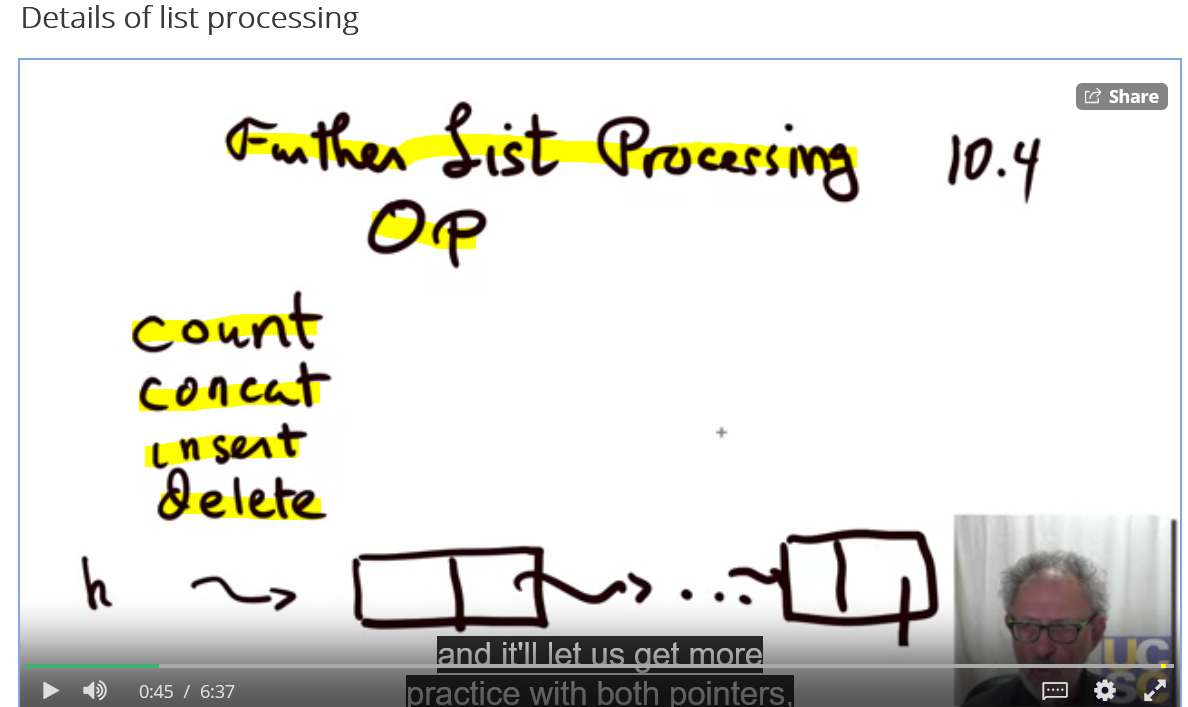 Details of list processing
Share
Further List Processing 10.4
OP
count
concat
insert
delete
h
and it'll let us get more
practice with both pointers,
0:45 / 6:37
UC
SC